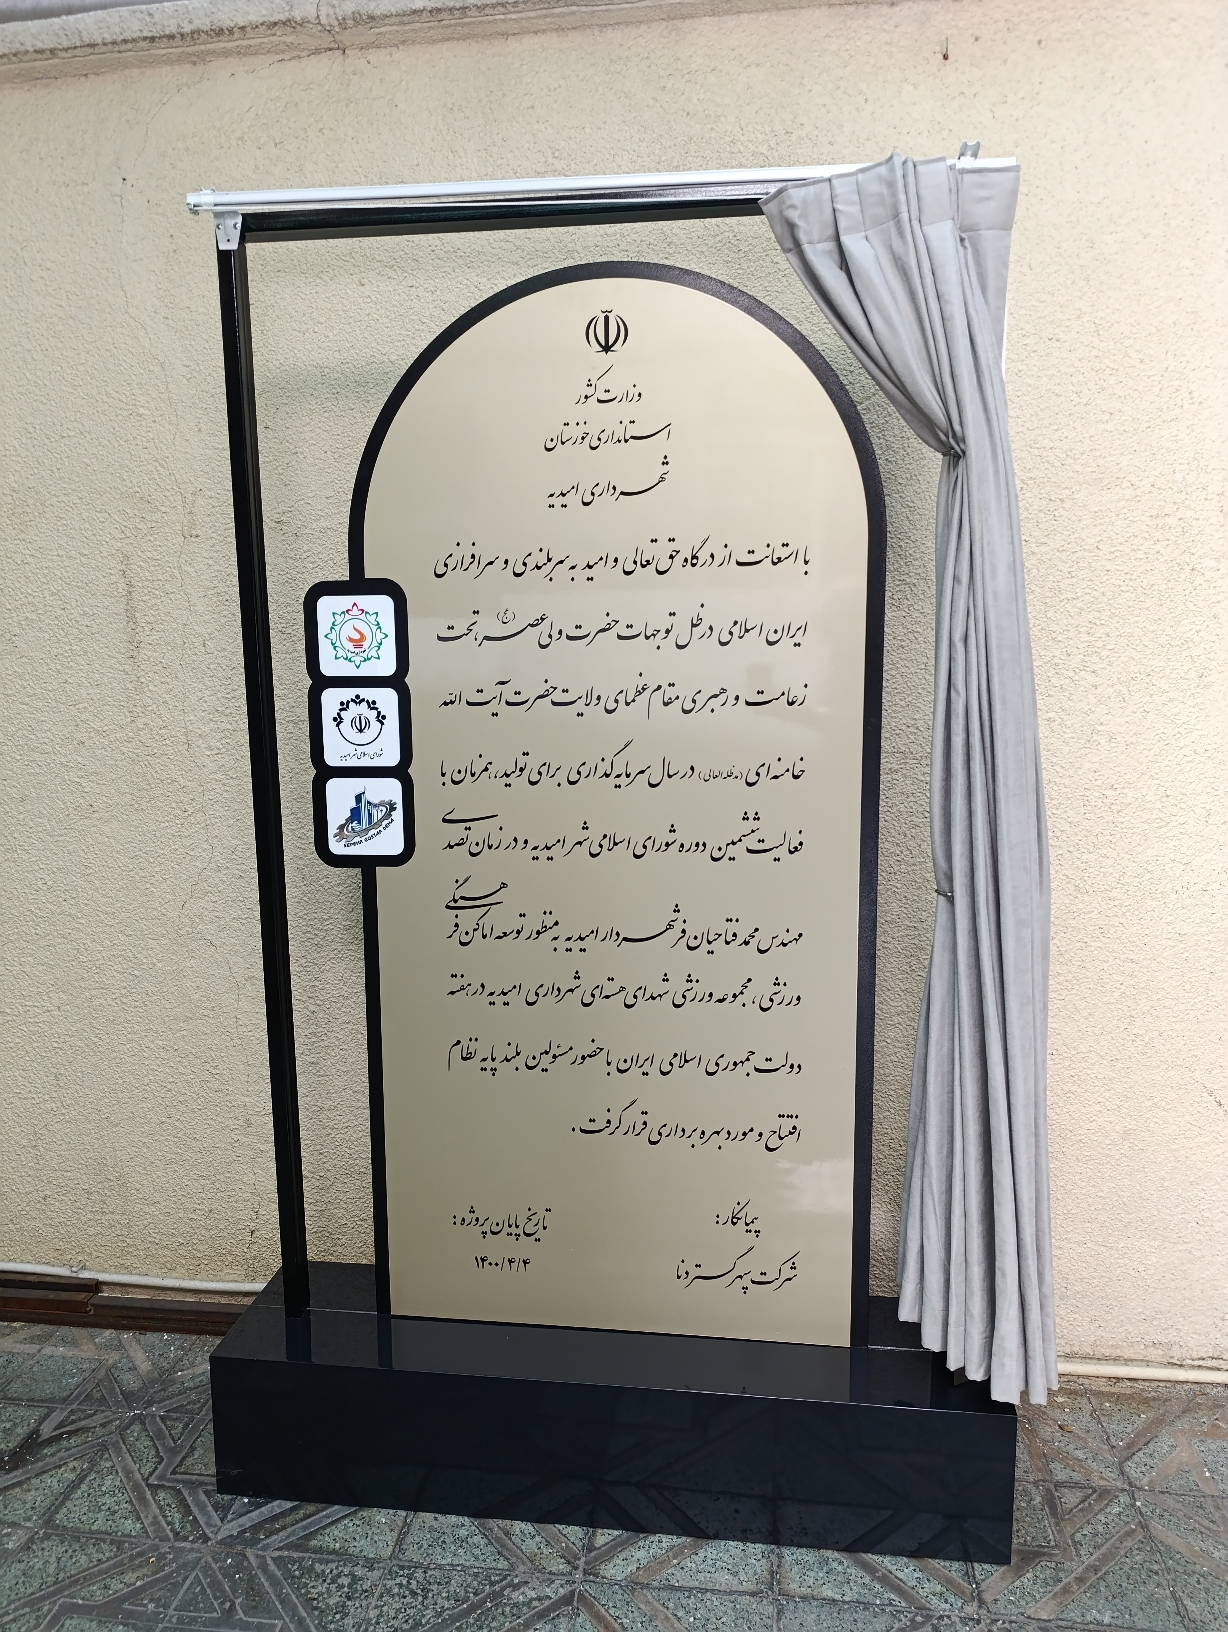 وزارت کشور
استانداری خوزستان
شهرداری امیدیه
با استعانت از درگاه حق تعالی و امید به سربلندی و سرافرازی
ایران اسلامی در ظل توجهات حضرت ولی عصر (عج)، تحت
زعامت و رهبری مقام عظمای ولایت حضرت آیت الله
خامنه ای (مدظله العالی) در سال سرمایه گذاری برای تولید، همزمان با
فعالیت ششمین دوره شورای اسلامی شهر امیدیه و در زمان تصدی
مهندس محمد فتاحیان فر شهردار امیدیه به منظور توسعه اماکن فرهنگی
ورزشی، مجموعه ورزشی شهدای هسته ای شهرداری امیدیه در هفته
دولت جمهوری اسلامی ایران با حضور مسئولین بلند پایه نظام
افتتاح و مورد بهره برداری قرار گرفت .
پیمانکار :
شرکت سپهر گستر دنا
تاریخ پایان پروژه :
۱۴۰۰/۴/۴
شورای اسلامی شهر امیدیه